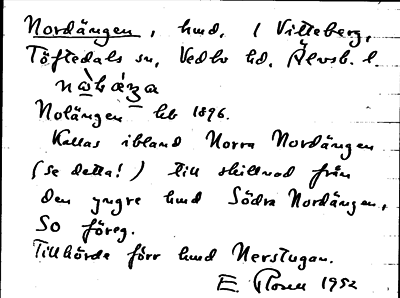 Nordängen, hmd, i Vitteberg,
Töftedals sn, Vedbo hd, Älvsb. l.
Nolängen hb 1896.
Kallas ibland Norra Nordängen
(se detta!) till skillnad från
den yngre hmd Södra Nordängen,
SO föreg.
Tillhörde förr hmd Nerstugan.
E Rosell 1952